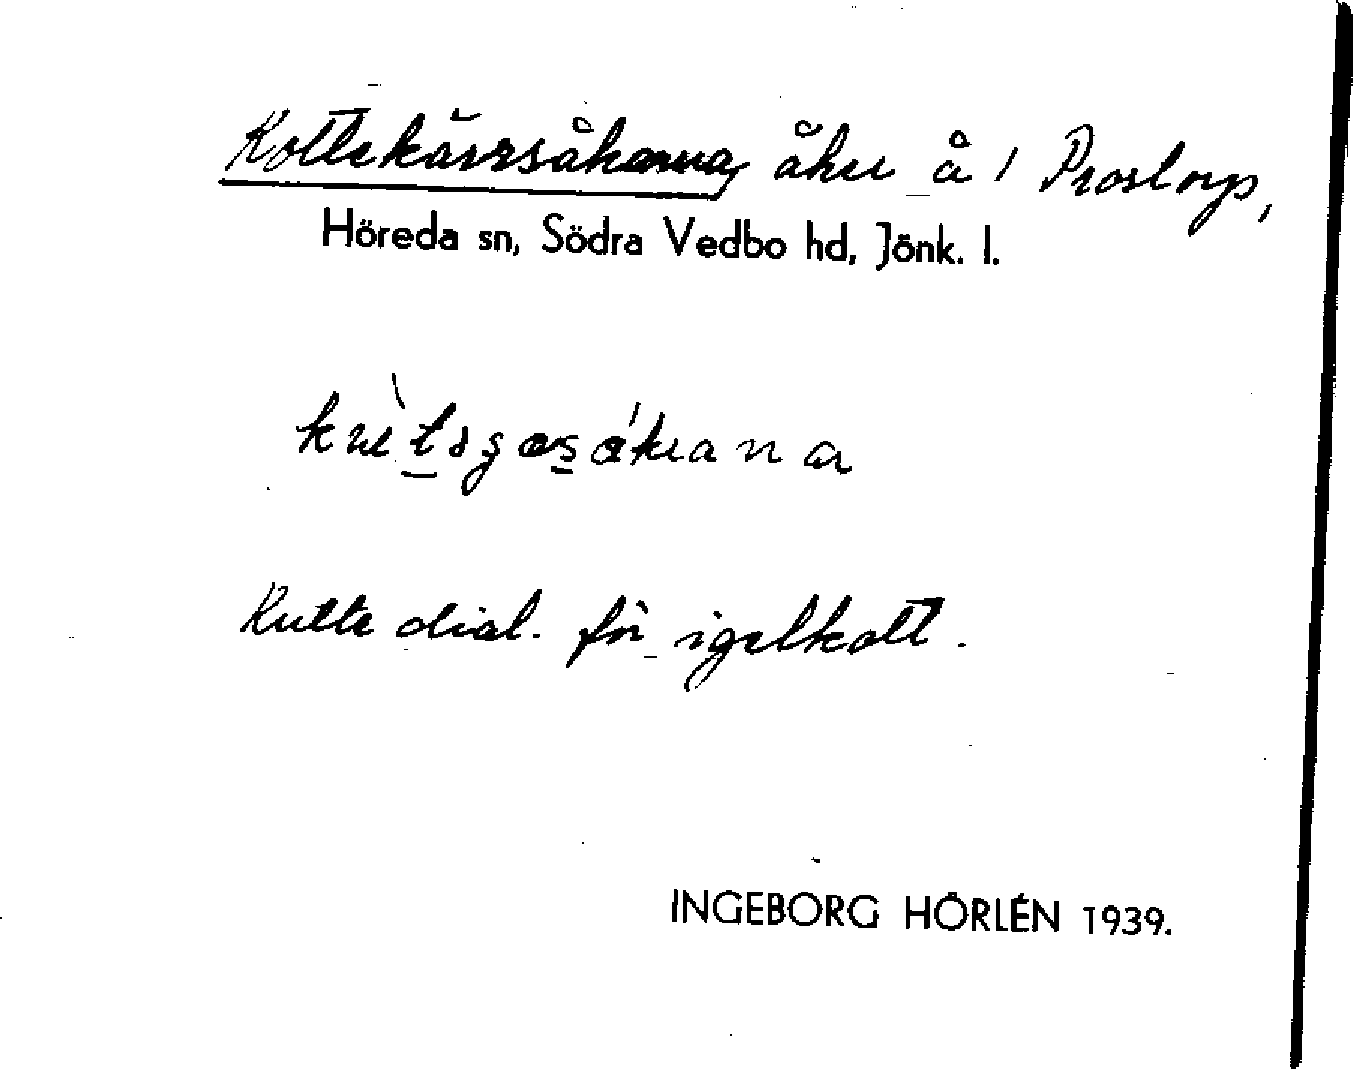 Kottekärrsåkarna, åker å 1 Prostorp,
Höreda sn, Södra Vedbo hd, Jönk. l.
Kutte dial. för igelkott.
INGEBORG HÖRLÉN 1939.